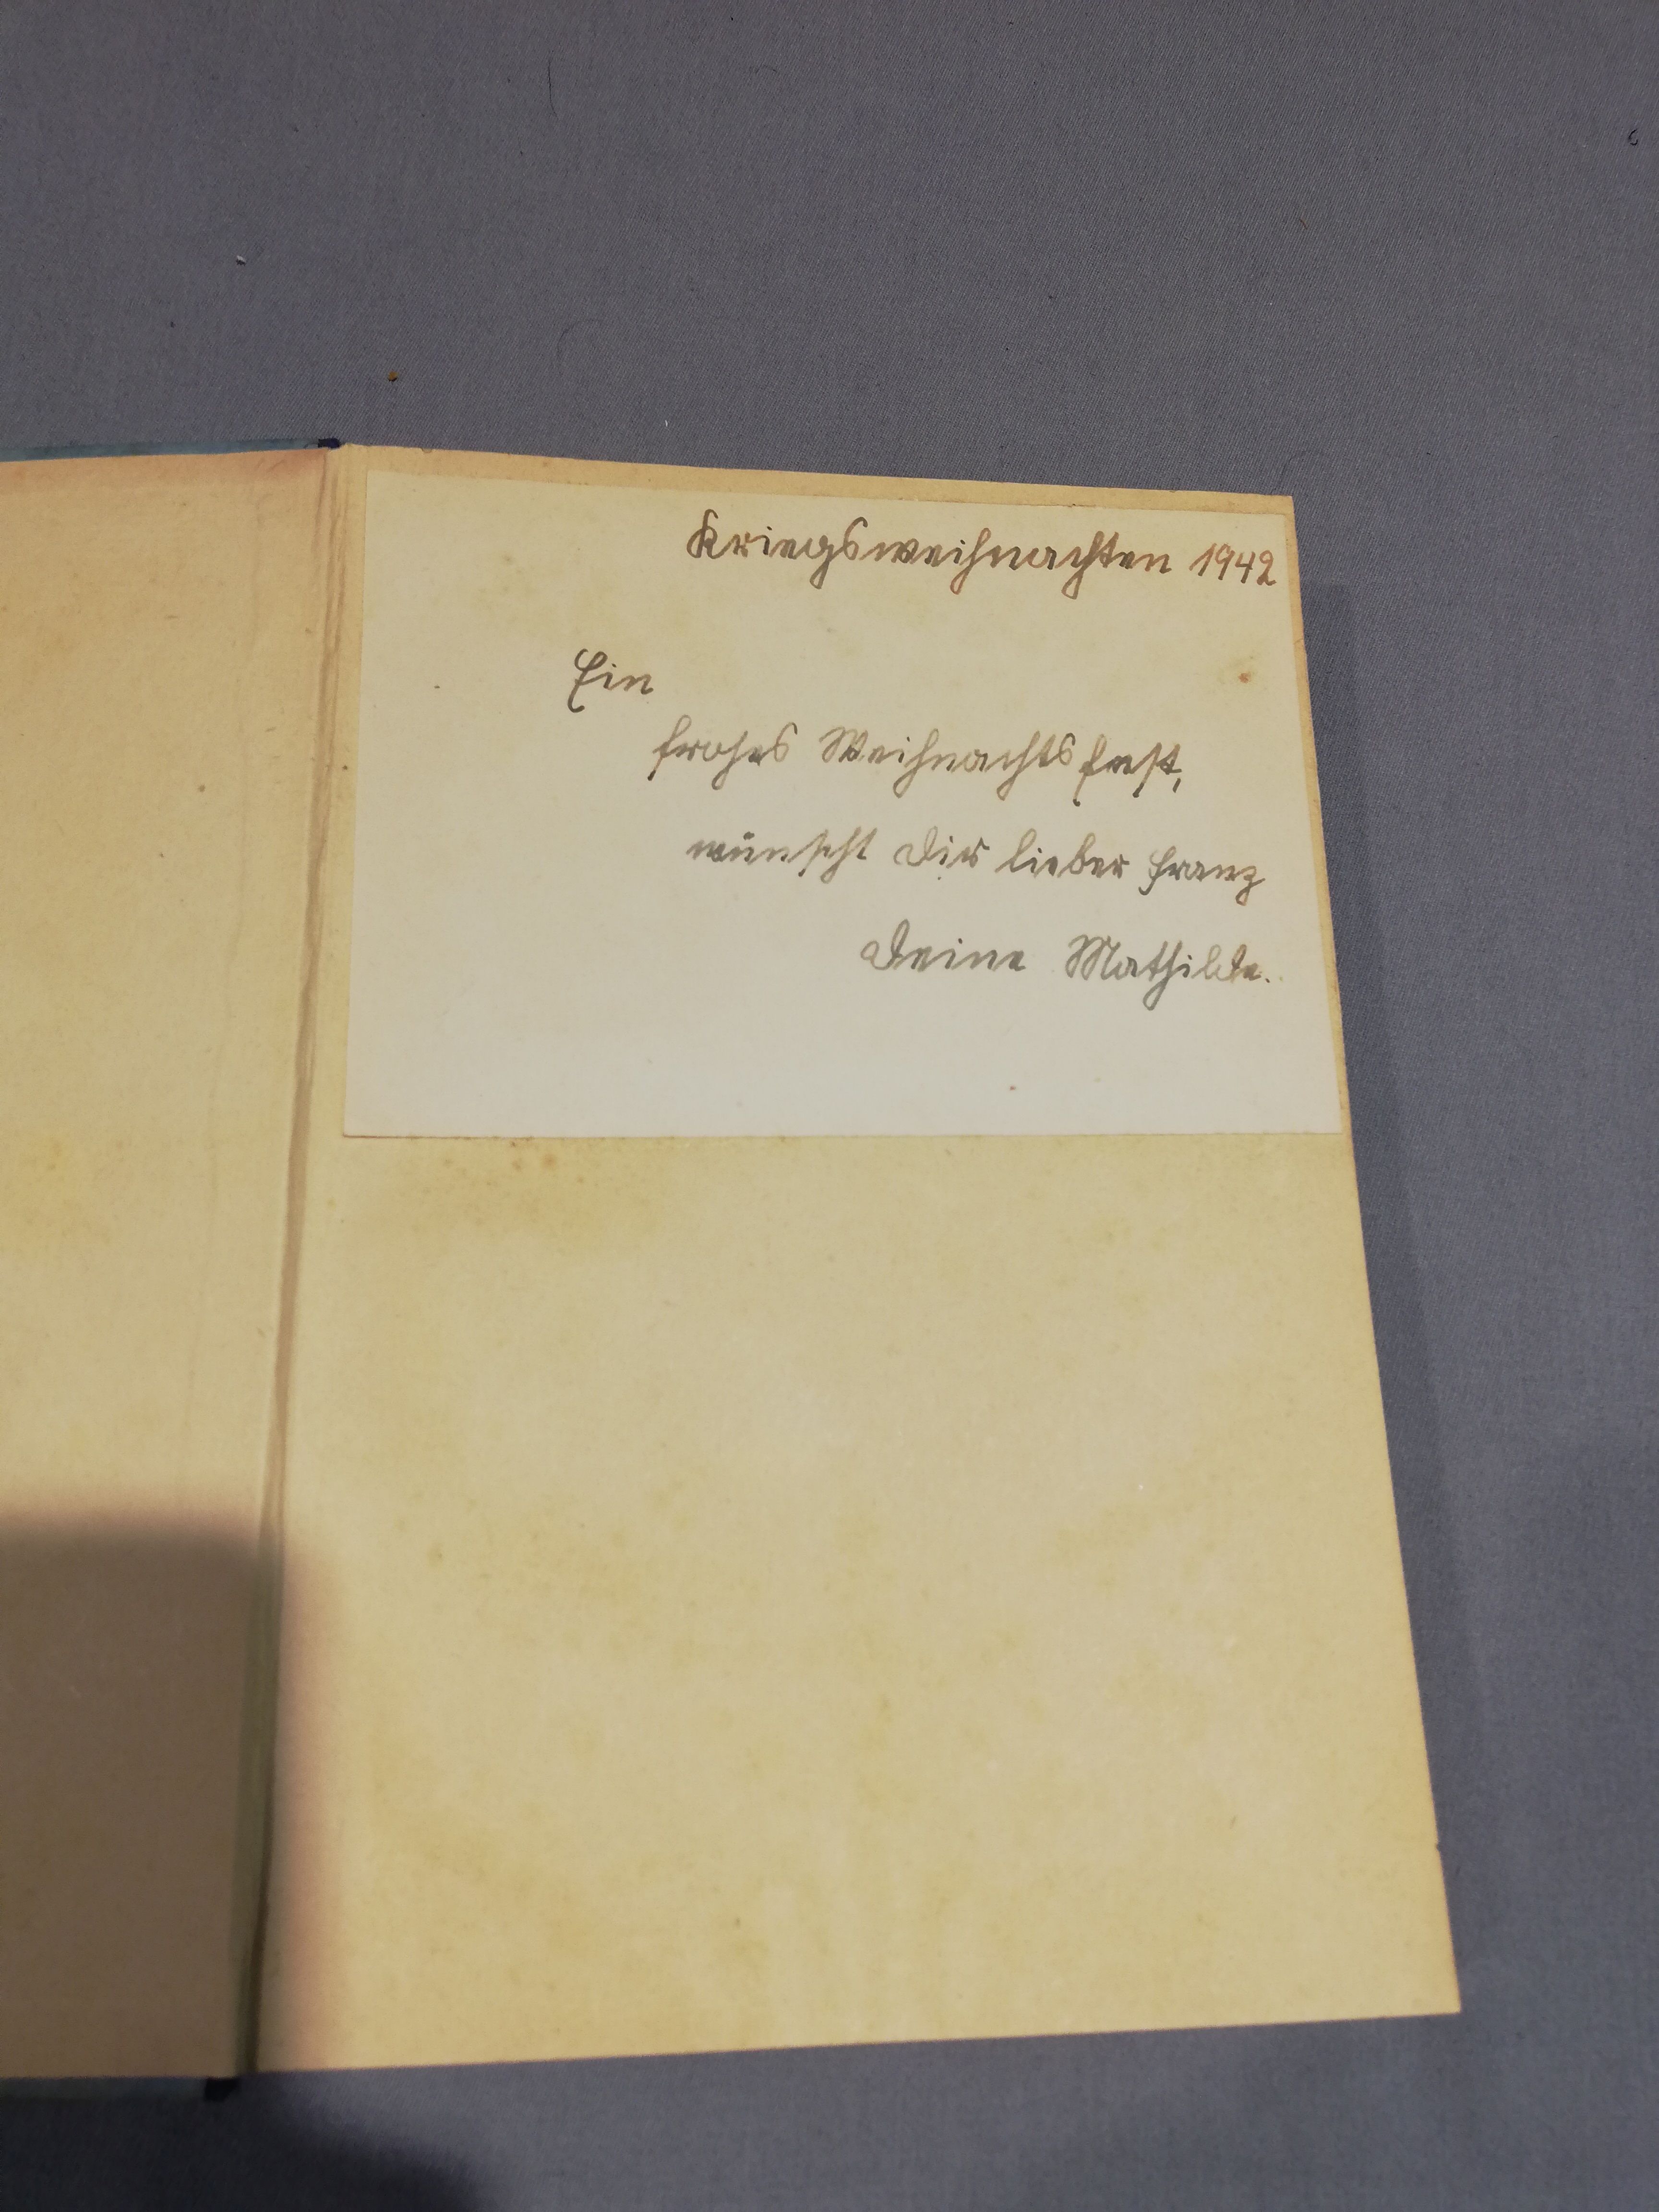 Kriegsweihnachten 1942
Ein
frohes Weihnachtsfest,
wünscht Dir lieber Franz
Deine Mathilde.